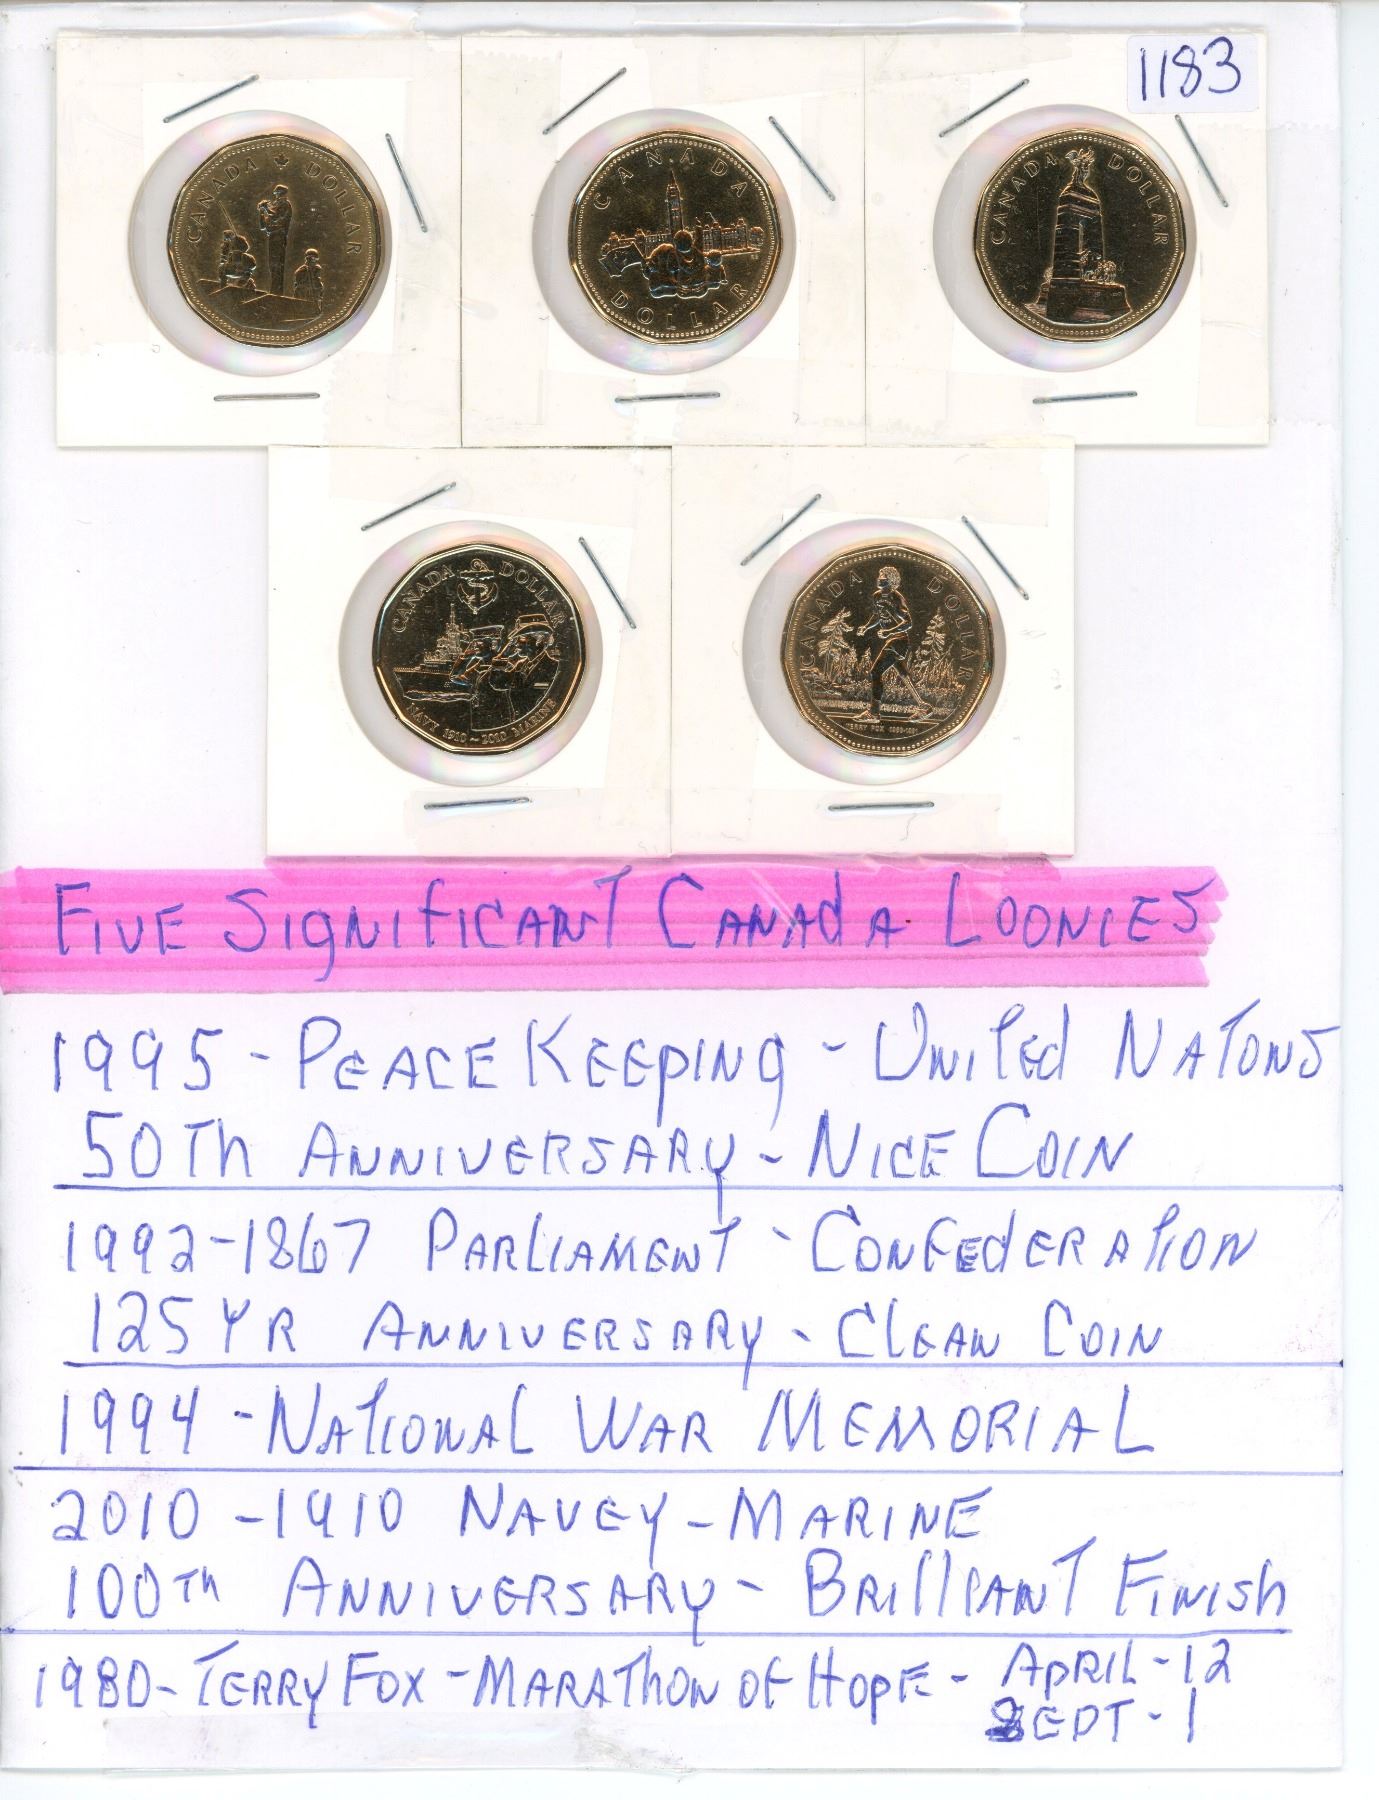 1183
CANADA DOLLAR
CANADA
DOLLAR
CANADA DOLLAR
CANADA DOLLAR
NAVY 1910 ~ 2010 MARINE
CANADA DOLLAR
TERRY FOX
FIVE SIGNIFICANT CANADA LOONIES
1995 - PEACE KEEPING - UNITED NATONS
50TH ANNIVERSARY - NICE COIN
1992-1867 PARLIAMENT - CONFEDERATION
125 YR ANNIVERSARY - CLEAN COIN
1994 - NATIONAL WAR MEMORIAL
2010 - 1910 NAVEY - MARINE
100TH ANNIVERSARY - BRILLIANT FINISH
1980 - TERRY FOX - MARATHON OF HOPE - APRIL - 12
SEPT - 1